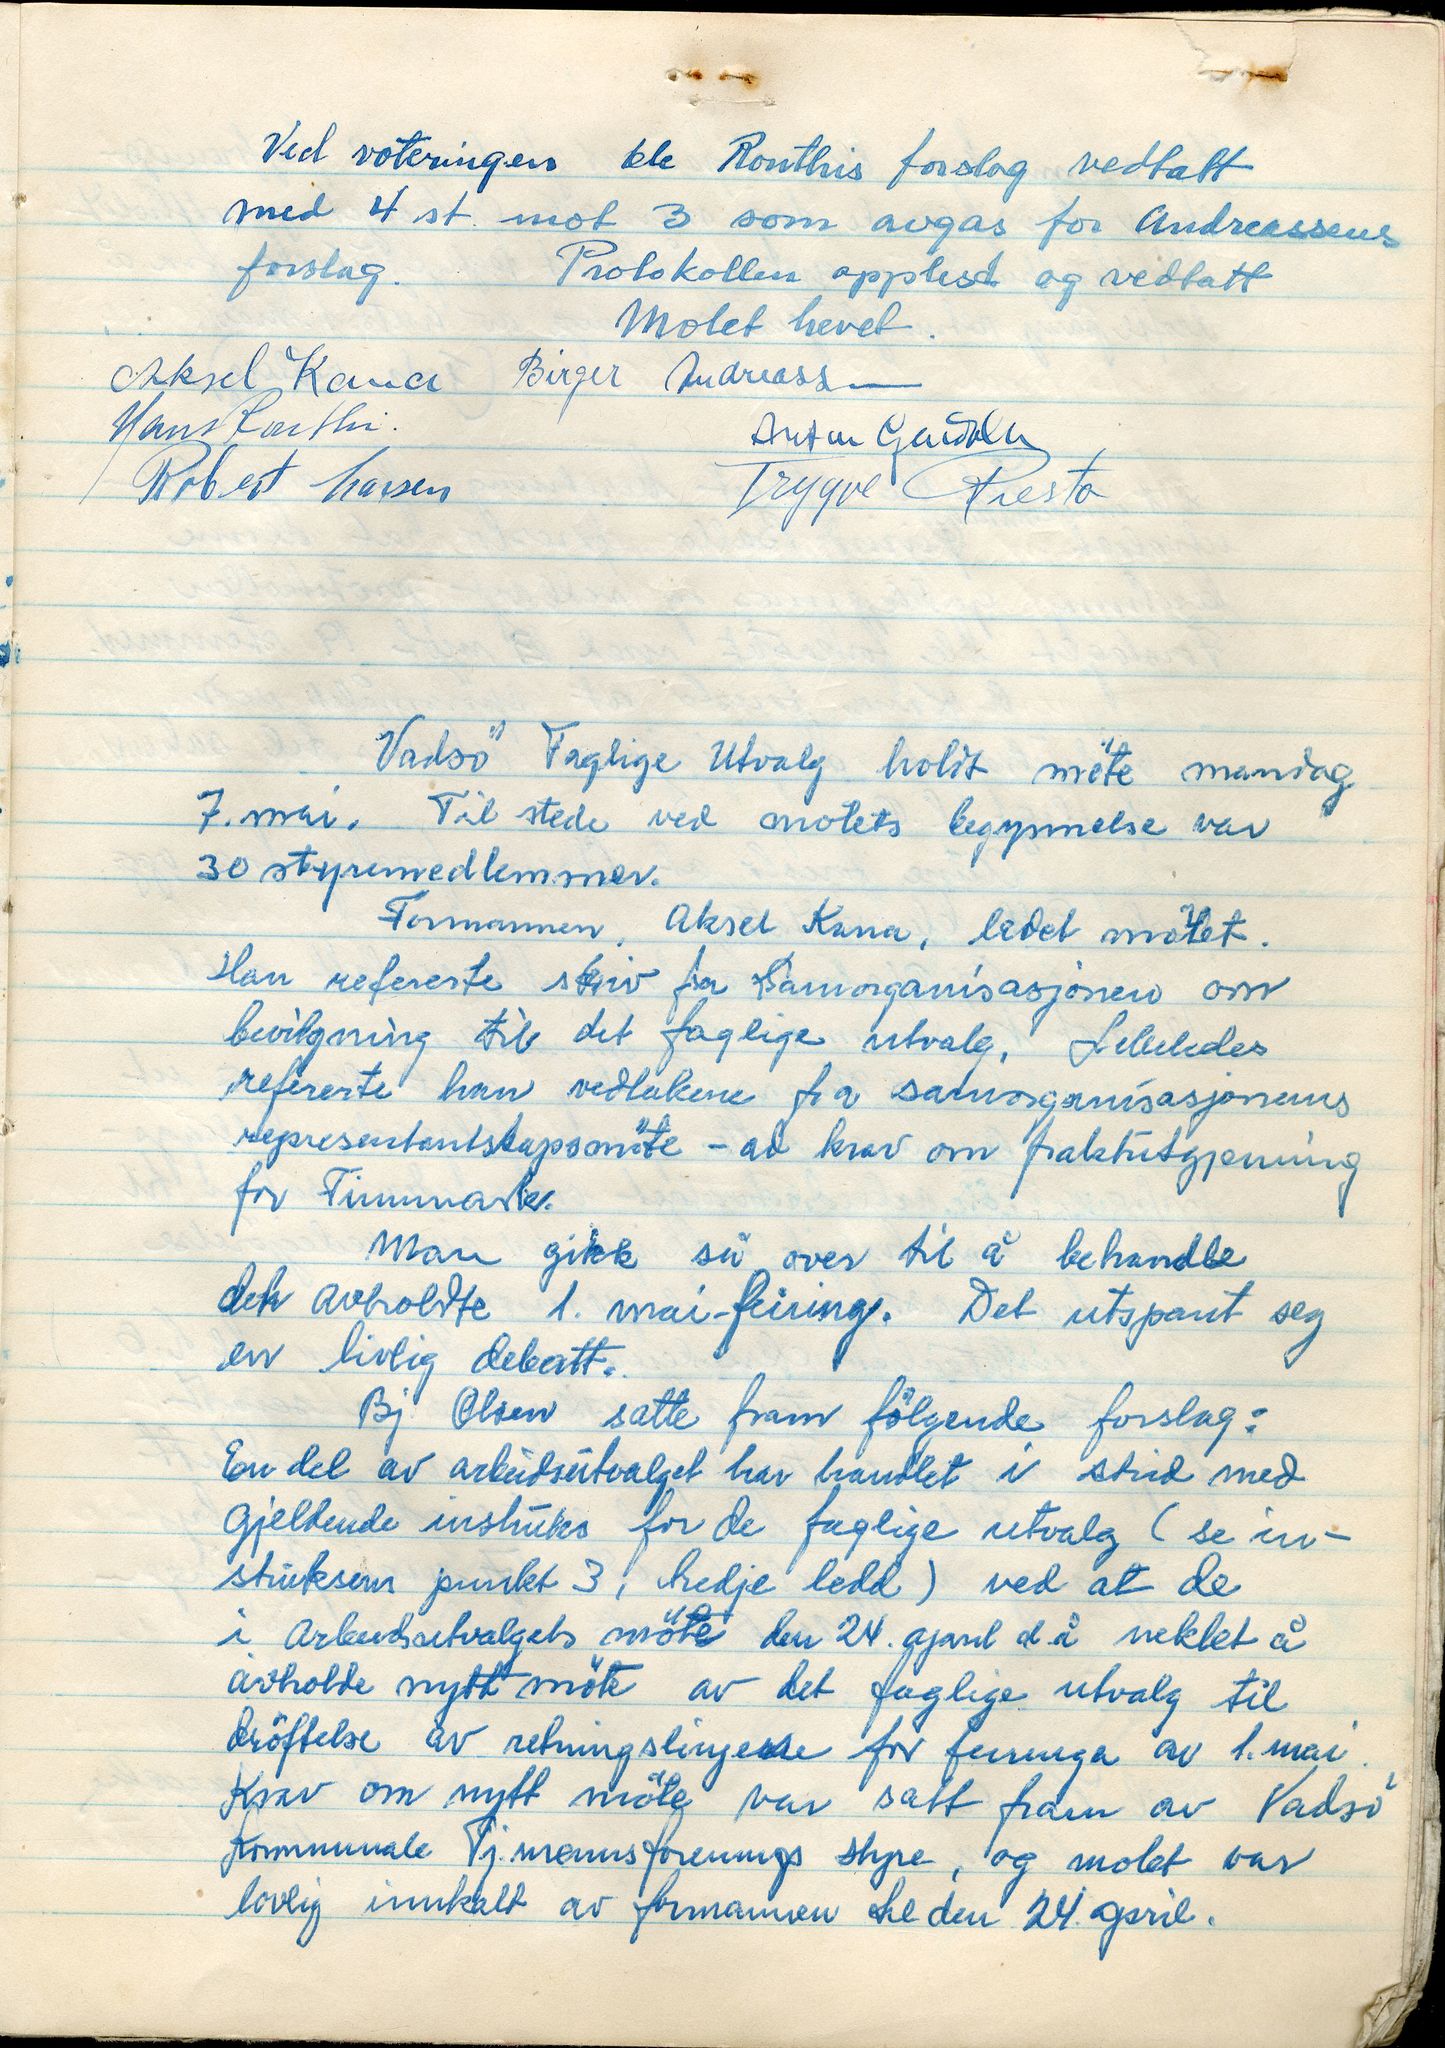 Ved voteringen ble Ronthis forslag vedtatt
med 4 st. mot 3 som avgas for Andreassens
forslag. Protokollen opplest og vedtatt
Motet hevet.
Aksel Kana Birger Andreass
Hans Ronthi.
Robert Larsen Trygve Presta
Vadsö Faglige Utvalg holdt möte mandag
7. mai. Til stede ved motets begynnelse var
30 styremedlemmer.
Formannen, Aksel Kana, ledet mötet.
Han refererte skriv fra Samorganisasjonen om
bevilgning til det faglige utvalg. Likeledes
refererte han vedtakene fra samorganisasjonens
representantskapsmöte - ad krav om fraktutgjevning
for Finnmark.
Man gikk så over til å behandle
den avholdte 1. mai-feiring. Det utspant seg
en livlig debatt.
Bj Olsen satte fram fölgende forslag:
En del av arbeidsutvalget har handlet i strid med
gjeldende instruks for de faglige utvalg (se in-
struksens punkt 3, tredje ledd) ved at de
i arbeidsutvalgets möte den 24. april d.å nektet å
avholde nytt möte av det faglige utvalg til
dröftelse av retningslinjene for feiringa av 1. mai.
Krav om nytt möte var satt fram av Vadsö
Kommunale Tj.mannsforenings styre, og motet var
lovlig innkalt av formannen til den 24. april.